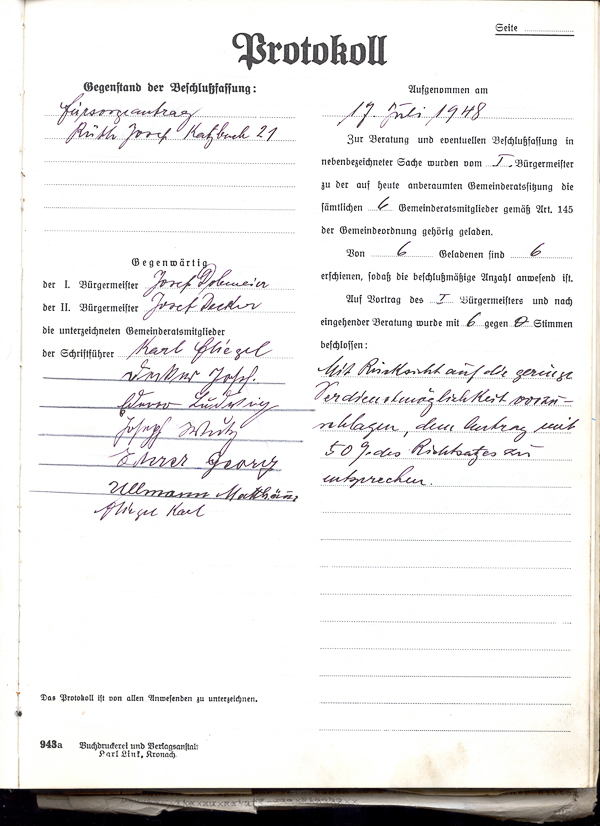 Seite
Protokoll
Gegenstand der Beschlußfassung:
Fürsorgeantrag
Rüth Josef Katzbach 21
Gegenwärtig
der I. Bürgermeister Josef Dobmeier
der II. Bürgermeister Josef Decker
die unterzeichneten Gemeinderatsmitglieder
der Schriftführer Karl Gliegel
Decker Josef.
Ludwig
Joseph Wutz
Georg
Ullmann Matthäus
Karl
Das Protokoll ist von allen Anwesenden zu unterzeichnen.
943a Buchdruckerei und Verlagsanstalt
Karl Link, Kronach.
Aufgenommen am
17. Juli 1948
Zur Beratung und eventuellen Beschlußfassung in
nebenbezeichneter Sache wurden vom I. Bürgermeister
zu der auf heute anberaumten Gemeinderatssitzung die
sämtlichen 6 Gemeinderatsmitglieder gemäß Art. 145
der Gemeindeordnung gehörig geladen.
Von 6 Geladenen sind 6
erschienen, sodaß die beschlußmäßige Anzahl anwesend ist.
Auf Vortrag des I Bürgermeisters und nach
eingehender Beratung wurde mit 6 gegen 0 Stimmen
beschlossen:
Mit Rücksicht auf die geringe
Verdienstmöglichkeit vorzu-
schlagen, dem Antrag mit
50 % des Richtsatzes zu
entsprechen.